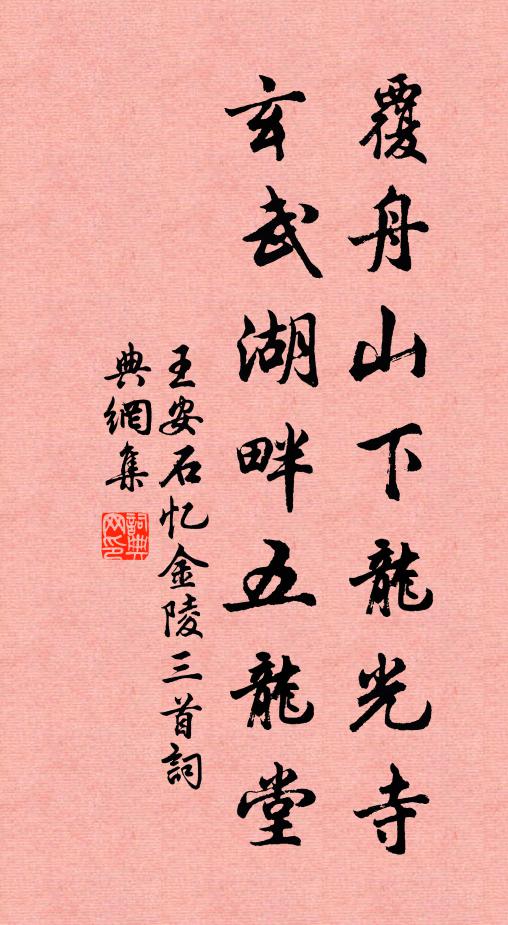 覆舟山下龍光寺
玄武湖畔五龍堂
王安石忆金陵三首詞
典網集
詞典網印